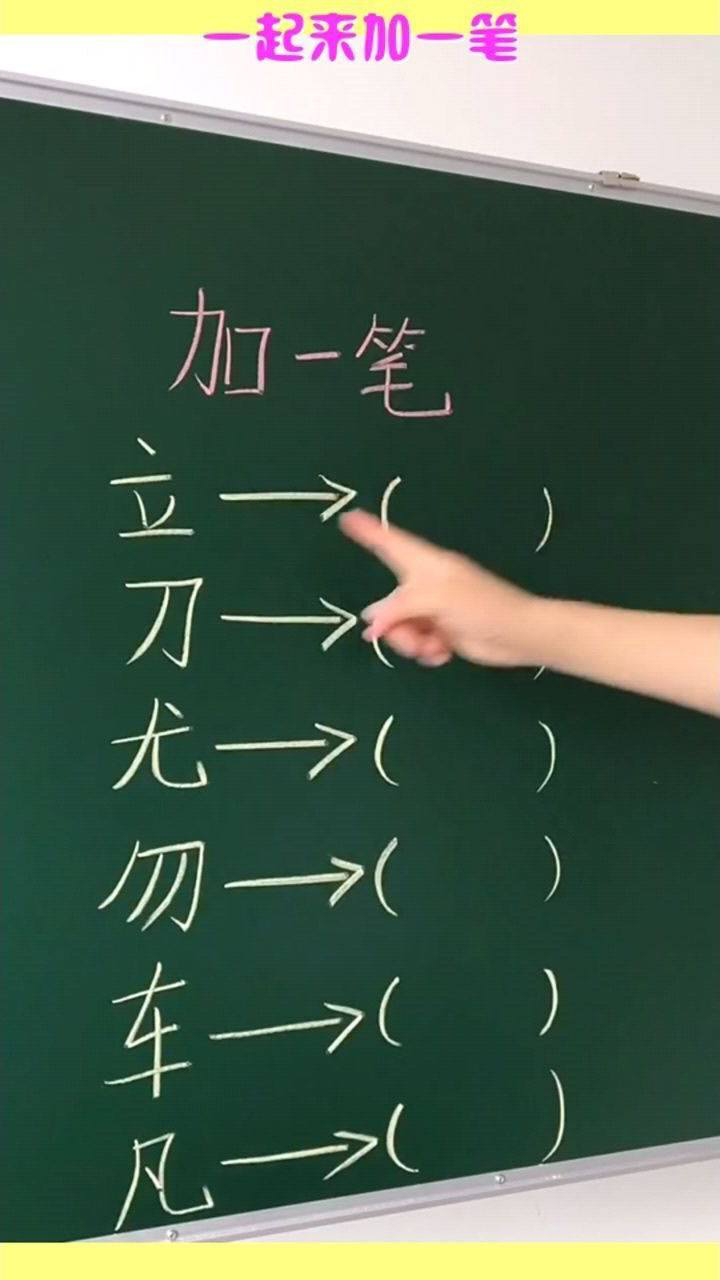 一起来加一笔
加一笔
立→( )
刀→( )
尤→( )
勿→( )
车→( )
凡→( )